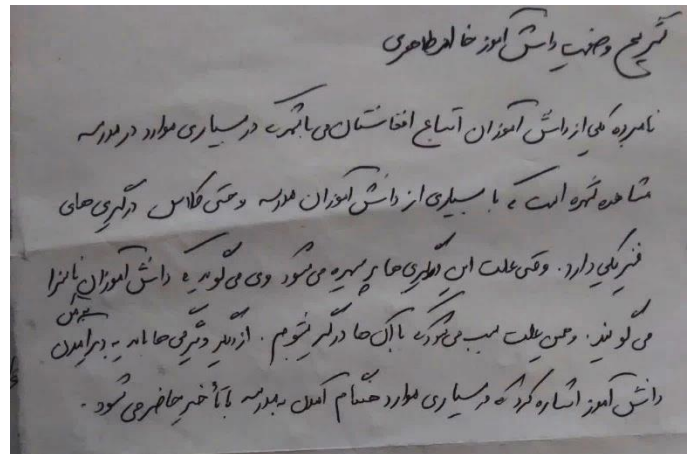 تشریح وضعیت دانش آموز خالد طاهری
نامبرده یکی از دانش آموزان اتباع افغانستان می باشد که در بسیاری موارد در مدرسه
مشاهده شده است که با بسیاری از دانش آموزان مدرسه و حتی کلاس درگیری های
فیزیکی دارد. وقتی علت این درگیری ها پرسیده می شود وی می گوید که دانش آموزان ناسزا
می گویند. و همین علت سبب می شود که با آن ها درگیر بشوم. از دیگر ویژگی ها باید به دیر آمدن
دانش آموز اشاره کرد که در بسیاری موارد هنگام آمدن به مدرسه با تأخیر حاضر می شود.